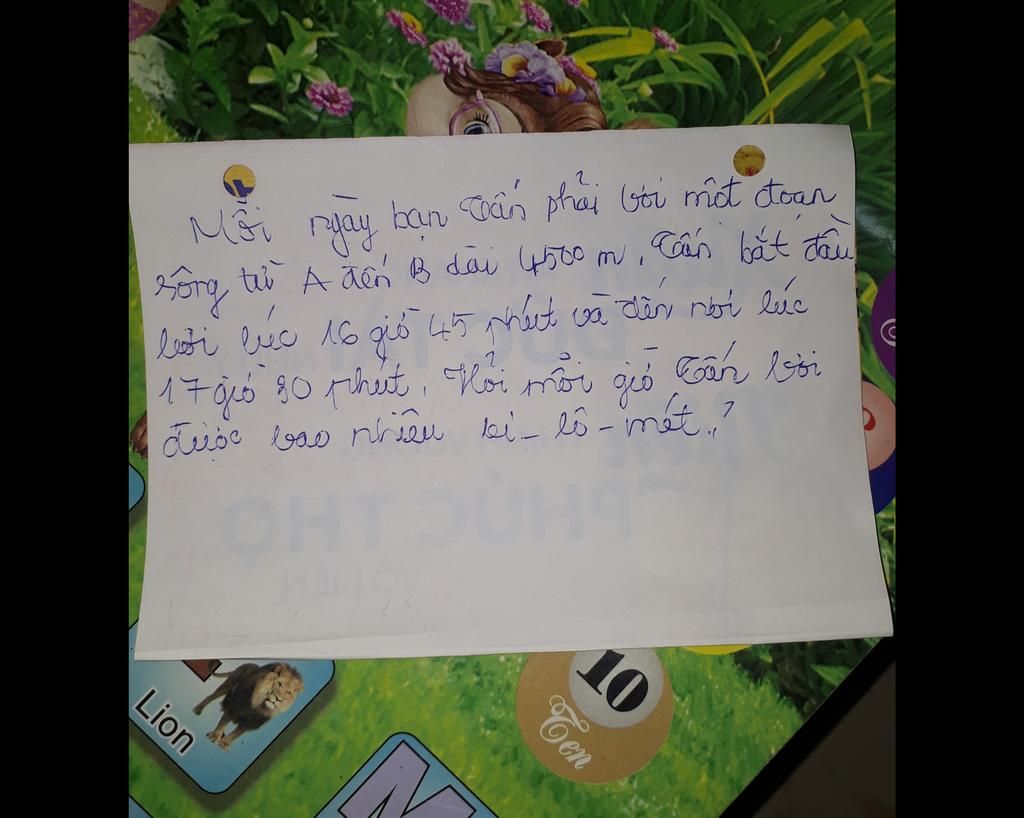 Mỗi ngày bạn Tấn phải bơi một đoạn
sông từ A đến B dài 4500 m. Tấn bắt đầu
bơi lúc 16 giờ 45 phút và đến nơi lúc
17 giờ 30 phút. Hỏi mỗi giờ Tấn bơi
được bao nhiêu ki-lô-mét.?
PHÚC THỌ
VÔ BIÊN
Lion
10
Ten
M